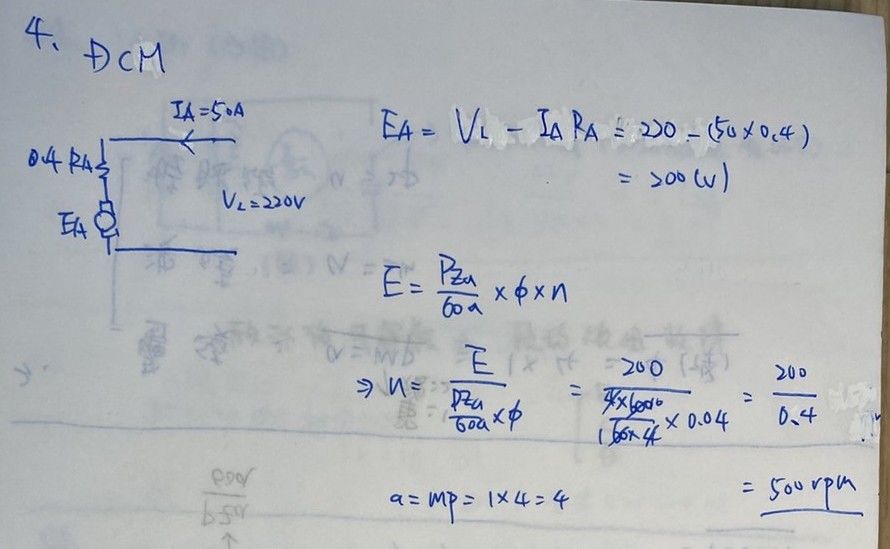 4.
DCM
IA=50A
0.4 RA
EA
VL=220V
EA = VL - IA RA = 220 - (50×0.4)
= 200 (V)
E = PZa/60a × ϕ × n
⇒ n = E / (PZa/60a × ϕ) = 200 / (4×600/60×4 × 0.04) = 200/0.4
= 500 rpm
a = mp = 1×4 = 4